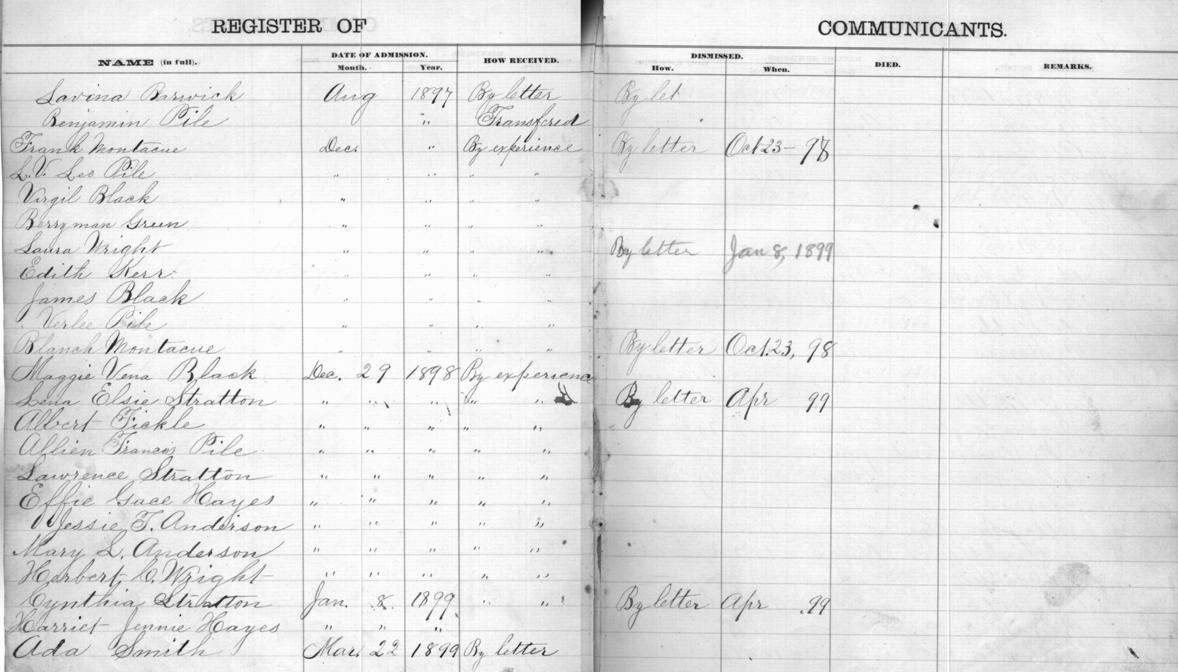 REGISTER OF COMMUNICANTS.
NAME (in full). DATE OF ADMISSION. HOW RECEIVED. DISMISSED. DIED. REMARKS.
Month. Year. How. When.
Lavina Barwick Aug 1897 By letter By let
Benjamin Pile " Transfered
Frank Montacue Dec. " By experience By letter Oct 23 - 98
L.V. Leo Pile " " " "
Virgil Black " " " "
Berryman Green " " " "
Laura Wright " " " " By letter Jan 8, 1899
Edith Kerr " " " "
James Black " " " "
Verlee Pile " " " "
Blanch Montacue " " " " By letter Oct. 23, 98
Maggie Vena Black Dec. 29 1898 By experience
Lena Elsie Stratton " " " " " By letter Apr 99
Albert Fickle " " " " "
Allien Francis Pile " " " " "
Lawrence Stratton " " " " "
Effie Gace Hayes " " " " "
Jessie T. Anderson " " " " "
Mary L. Anderson " " " " "
Herbert C. Wright " " " " "
Cynthia Stratton Jan. 8. 1899 " " By letter Apr 99
Harriet Jennie Hayes " " "
Ada Smith Mar. 22 1899 By letter